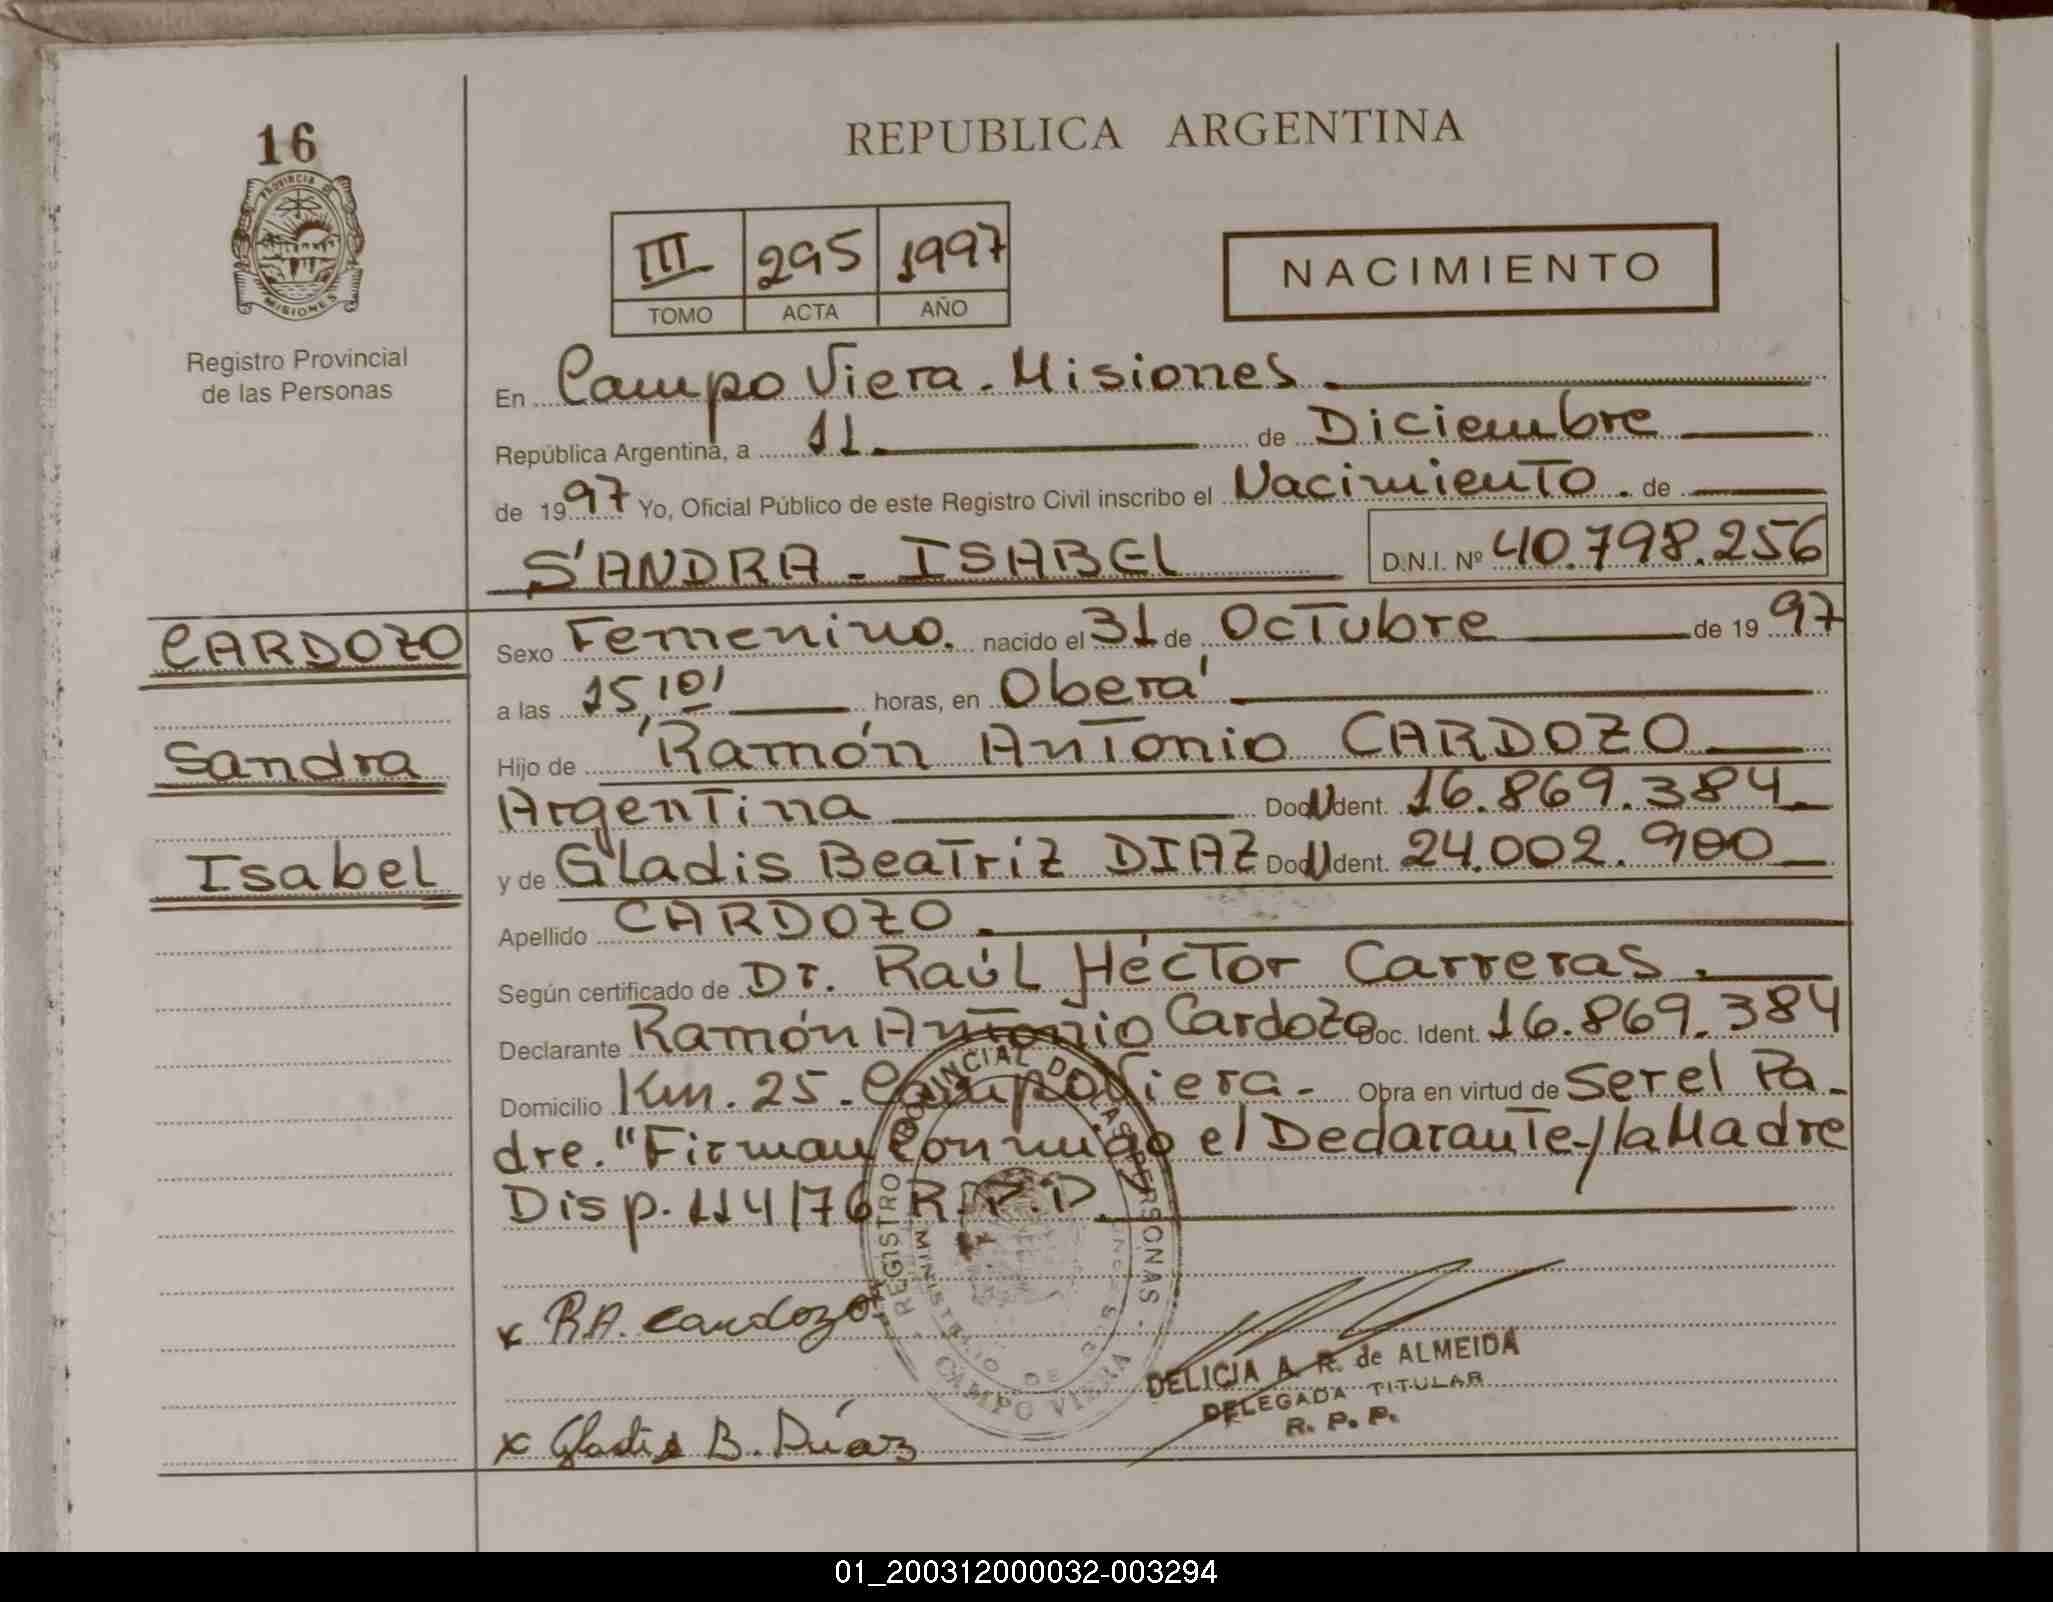 16
PROVINCIA DE
MISIONES
Registro Provincial
de las Personas
REPUBLICA ARGENTINA
III 295 1997
TOMO ACTA AÑO
NACIMIENTO
En Campo Viera - Misiones
República Argentina, a 11 de Diciembre
de 1997 Yo, Oficial Público de este Registro Civil inscribo el Nacimiento. de
SANDRA - ISABEL D.N.I. Nº 40.798.256
CARDOZO
Sandra
Isabel
Sexo Femenino. nacido el 31 de Octubre de 1997
a las 15,10' horas, en Oberá
Hijo de Ramón Antonio CARDOZO
Argentina Doc. Ident. 16.869.384
y de Gladis Beatriz DIAZ Doc. Ident. 24.002.900
Apellido CARDOZO
Según certificado de Dr. Raúl Héctor Carreras.
Declarante Ramón Antonio Cardozo Doc. Ident. 16.869.384
Domicilio Km. 25 - Campo Viera - Obra en virtud de Ser el Pa-
dre. "Firman conmigo el Declarante y la Madre
Disp. 114/76 R.P.P.
x R.A. Cardozo
x Gladis B. Díaz
REGISTRO PROVINCIAL DE LAS PERSONAS
MINISTERIO DE
CAMPO VIERA
DELICIA A. R. de ALMEIDA
DELEGADA TITULAR
R. P. P.
01_200312000032-003294